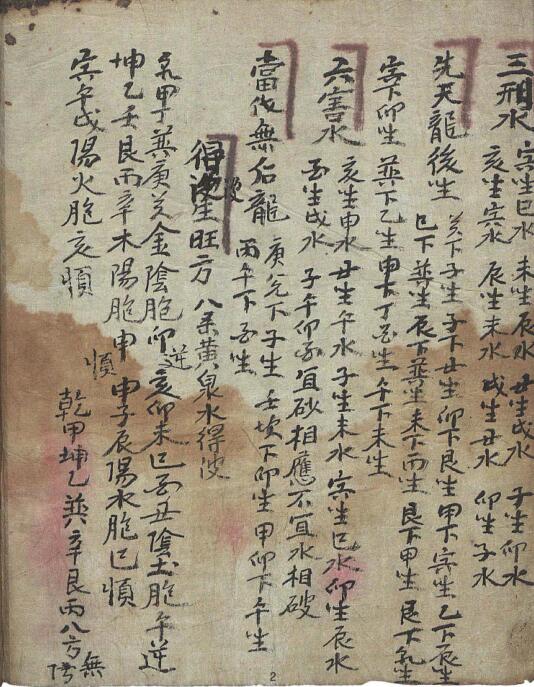 三刑水 寅生巳水 未生辰水 丑生戌水 子生卯水
亥生亥水 辰生未水 戌生丑水 卯生子水
先天龍後生 癸下子生 子下丑生 卯下艮生 甲下寅生 乙下辰生
巳下巽生 辰下巽生 未下丙生 艮下甲生 艮下乾生
寅下卯生 巽下乙生 申下丁生 午下未生
六害水 亥生申水 丑生午水 子生未水 寅生巳水 卯生辰水
酉生戌水 子午卯酉宜砂相應不宜水相破
當代無后龍 庚兌下子生 壬坎下卯生 甲卯下午生
丙午下子生
得破生旺方 八条黄泉水得破
乾甲丁巽庚癸金陰胞卯逆 亥卯未巳酉丑陰土胞午逆
坤乙壬艮丙辛木陽胞申順 申子辰陽水胞巳順
寅午戌陽火胞亥順 乾甲坤乙巽辛艮丙八方無
2